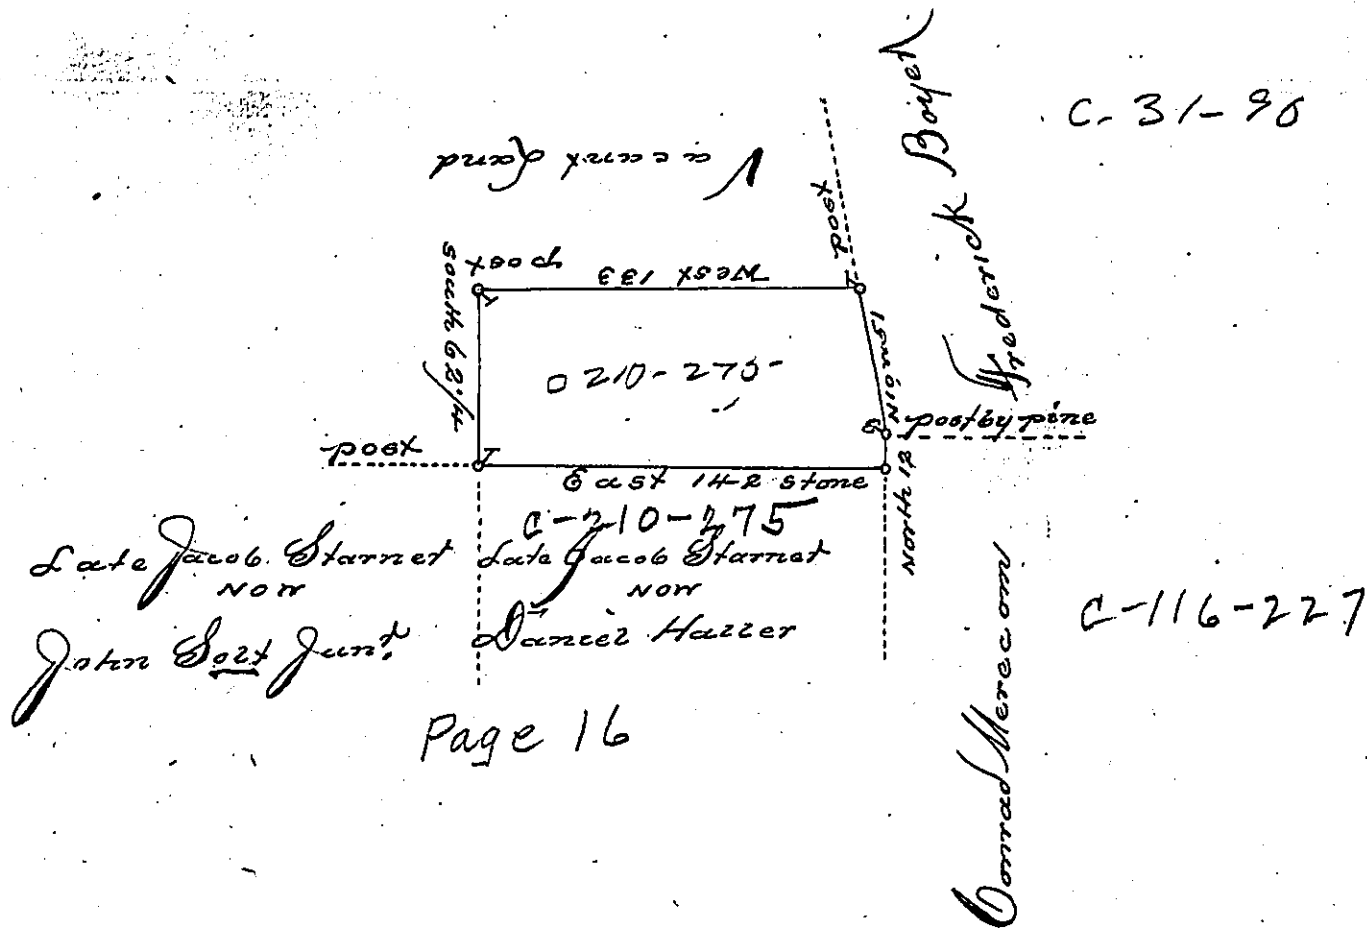 C-31-90
Vacant Land
Frederick Boyer
post
post
West 133
South 62.4
0 210-275-
post by pine
post
East 142 stone
North 12
C-210-275
Late Jacob Starnet
now
John Solt Junr.
Late Jacob Starnet
now
Daniel Haller
C-116-227
Conrad Merecom
Page 16